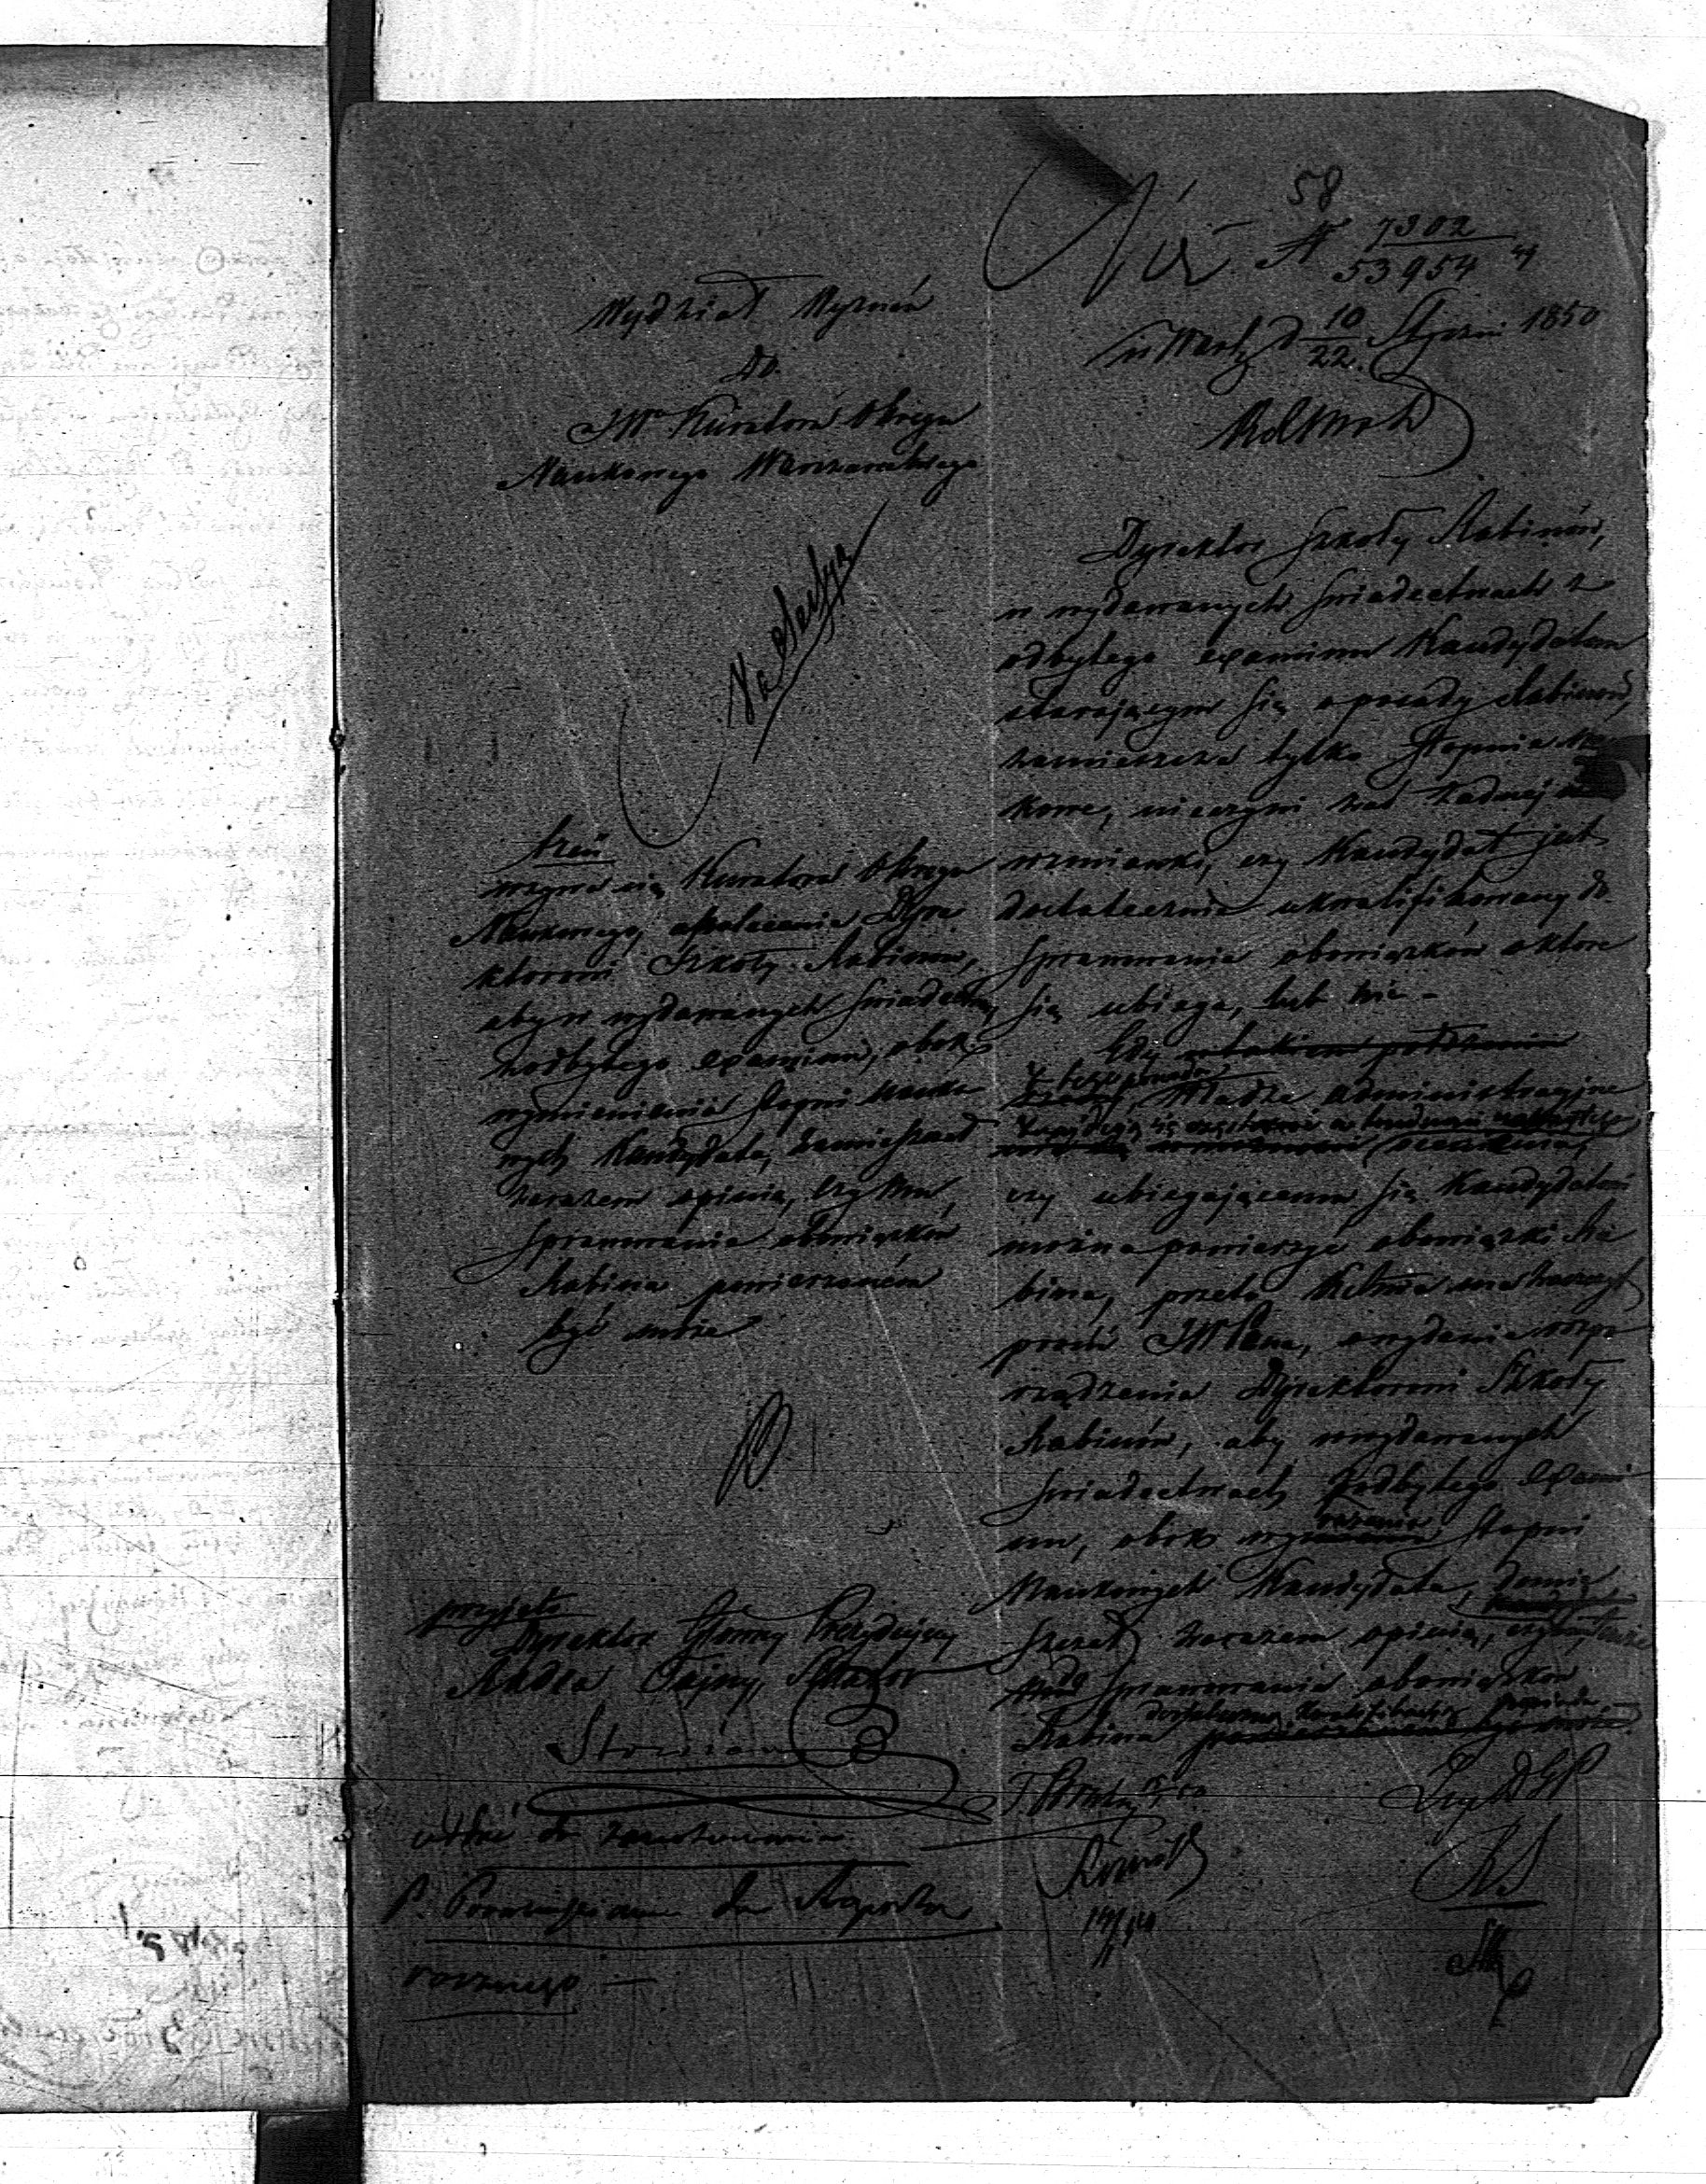 58
N 7302
53954
Wydział Wyznań
Do
JW Kuratora Okręgu
Naukowego Warszawskiego
w Warsz d 10/22 Styczni 1850
Dyrektor Szkoły Rabinów,
w wydawanych świadectwach z
odbytego examinu Kandydatom
starającym się o posady Rabinów,
zamieszcza tylko Stopnie nau
kowe, nieczyni zaś żadnej
wzmianki, czy Kandydat jest
dostatecznie ukwalifikowany do
sprawowania obowiązków o które
się ubiega, lub nie -
Gdy
Władze administracyjne
znajdują się częstokroć w trudnem
czy ubiegającemu się Kandydatowi
można powierzyć obowiązki Ra
bina, przeto ma zaszczyt
prosić JW Pana, o wydanie rozpo
rządzenia Dyrektorowi Szkoły
Rabinów, aby w wydawanych
świadectwach z odbytego exami
nu, obok wyrażenia Stopni
Naukowych Kandydata, zamie
szczał zarazem opinią, czy
do sprawowania obowiązków
Rabina dostateczną kwalifikacją posiada
wzywa się Kuratora Okręgu
Naukowego, o polecenie Dyre
ktorowi Szkoły Rabinów,
aby w wydawanych świadectwach
z odbytego examinu, obok
wymienienia stopni nauko
wych Kandydata, zamieszczał
zarazem opinią, czy mu
sprawowanie obowiązków
Rabina powierzonem
być może
przyjęto
Dyrektor Główny Prezydujący
Radca Tajny, Senator
do zanotowania
P. do Raportu
rocznego —